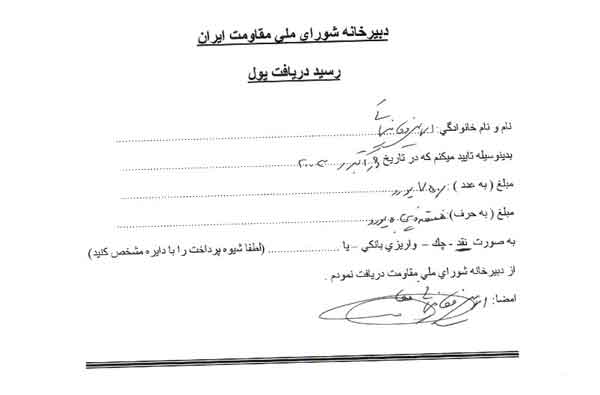 دبیرخانه شورای ملی مقاومت ایران
رسید دریافت پول
نام و نام خانوادگی:
بدینوسیله تایید میکنم که در تاریخ
مبلغ ( به عدد ) : ۷۵۰ یورو
مبلغ ( به حرف): هفتصد و پنجاه یورو
به صورت نقد - چك – واریزی بانکی – یا .................... (لطفا شیوه پرداخت را با دایره مشخص کنید)
از دبیرخانه شورای ملی مقاومت دریافت نمودم .
امضا: